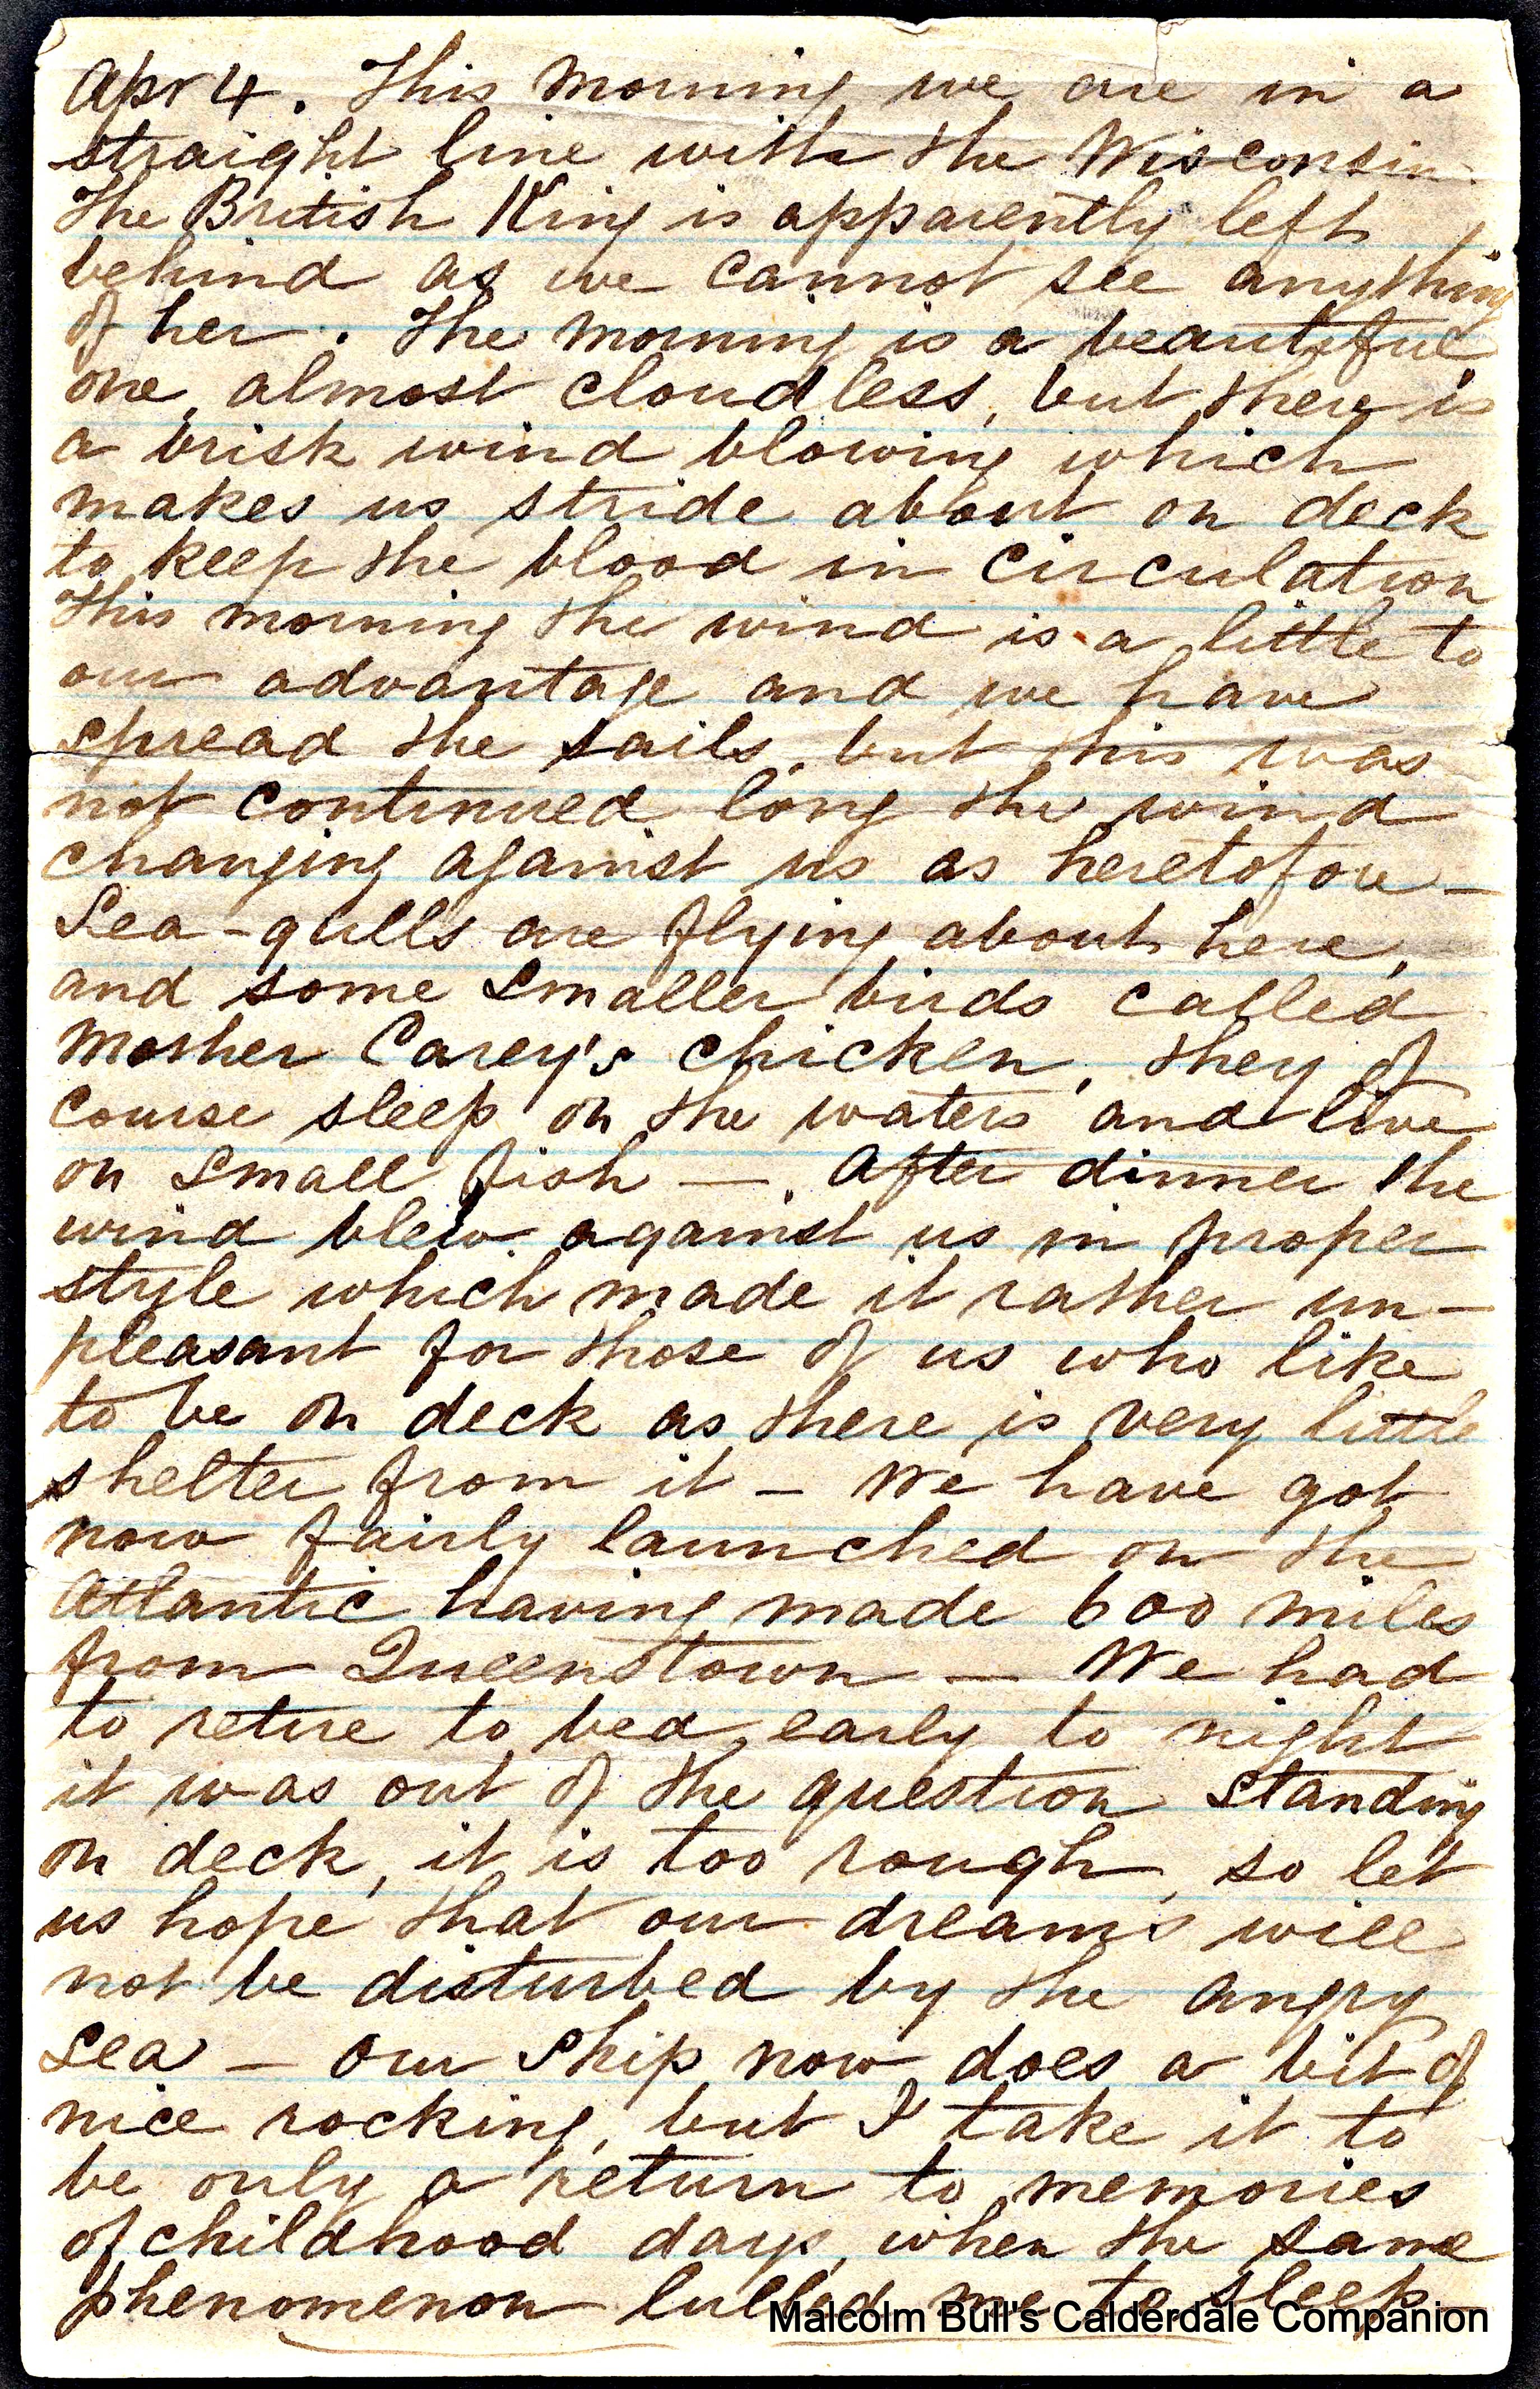 Apr 4. This morning we are in a
straight line with the Wisconsin.
The British King is apparently left
behind as we cannot see anything
of her. The morning is a beautiful
one, almost cloudless, but there is
a brisk wind blowing which
makes us stride about on deck
to keep the blood in circulation
This morning the wind is a little to
our advantage and we have
spread the sails, but this was
not continued long the wind
changing against us as heretofore -
Sea-gulls are flying about here,
and some smaller birds called
Mother Carey's chicken, they of
course sleep on the waters and live
on small fish —. After dinner the
wind blew against us in proper
style which made it rather un-
pleasant for those of us who like
to be on deck as there is very little
shelter from it - We have got
now fairly launched on the
Atlantic having made 600 miles
from Queenstown — We had
to retire to bed early to night
it was out of the question standing
on deck, it is too rough, so let
us hope that our dreams will
not be disturbed by the angry
sea - Our ship now does a bit of
nice rocking, but I take it to
be only a return to memories
of childhood days, when the same
phenomenon lulled me to sleep
Malcolm Bull's Calderdale Companion